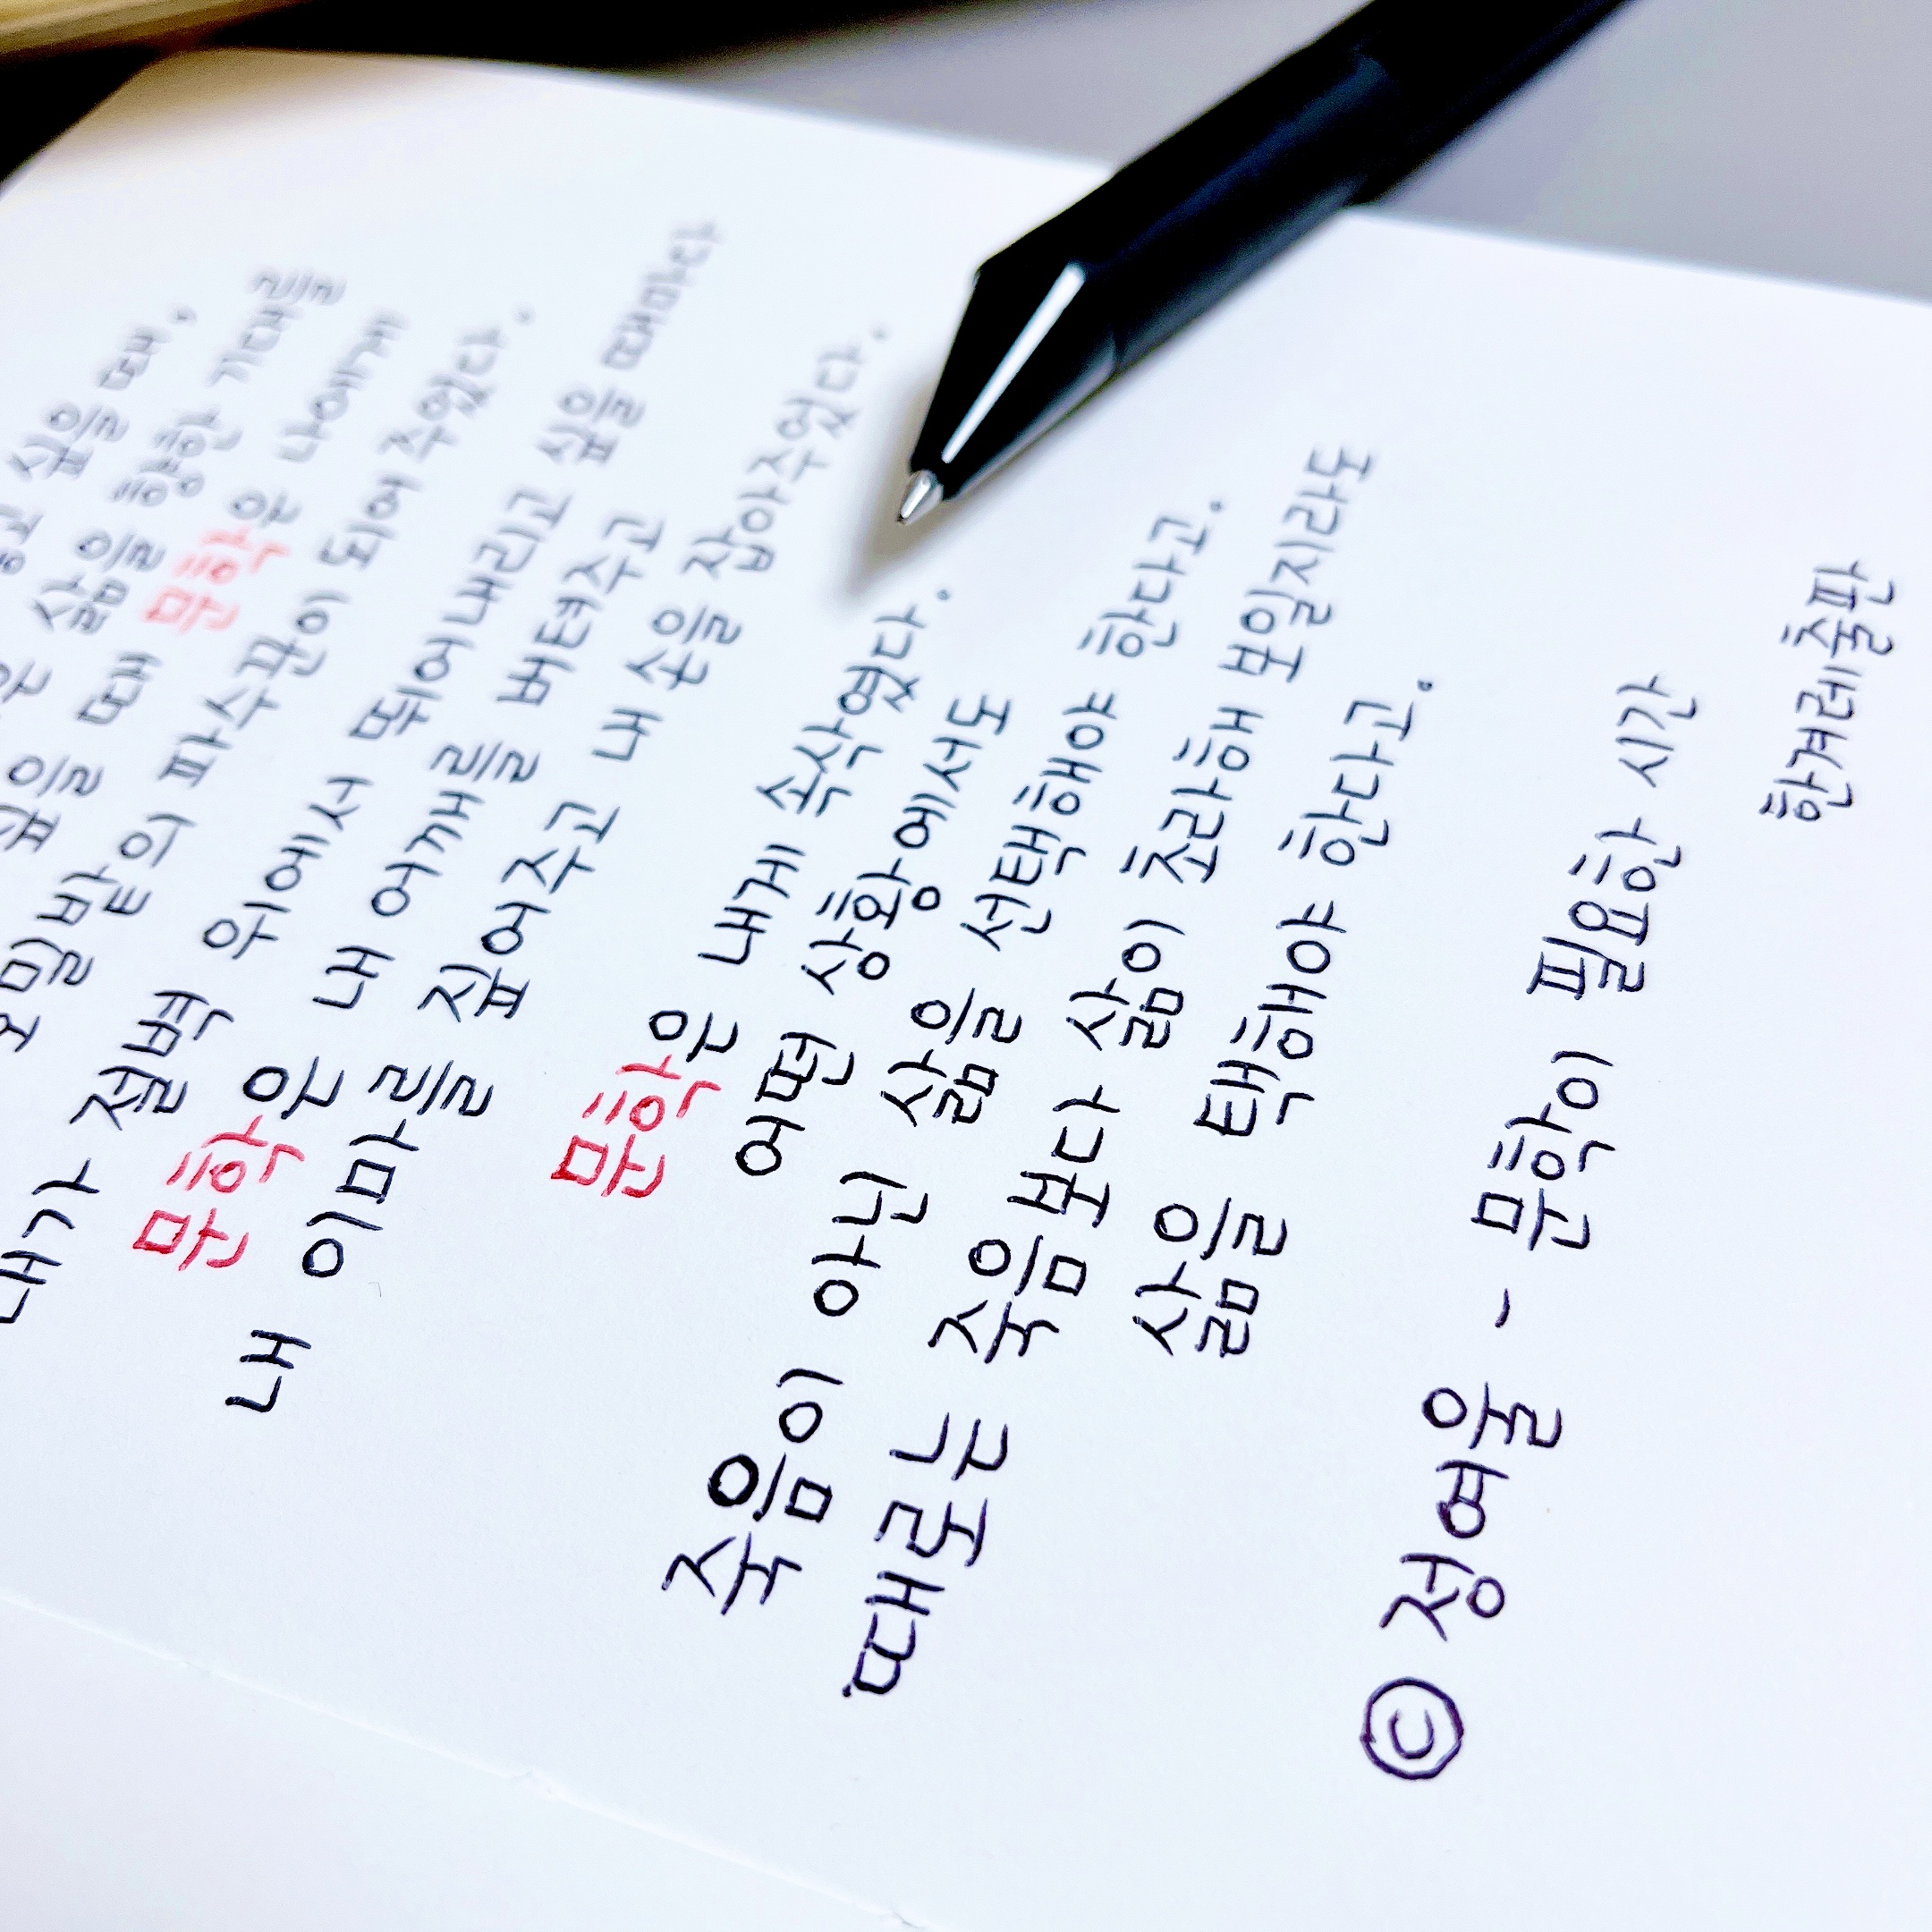 싶을 때,
삶을 향한 기대를
싶을 때 문학은 나에게
호밀밭의 파수꾼이 되어 주었다.
내가 절벽 위에서 뛰어내리고 싶을 때마다
문학은 내 어깨를 버텨주고
내 이마를 짚어주고 내 손을 잡아주었다.
문학은 내게 속삭였다.
죽음이 아닌 삶을 선택해야 한다고.
어떤 상황에서도
때로는 죽음보다 삶이 초라해 보일지라도
삶을 택해야 한다고.
© 정여울 - 문학이 필요한 시간
한겨레출판